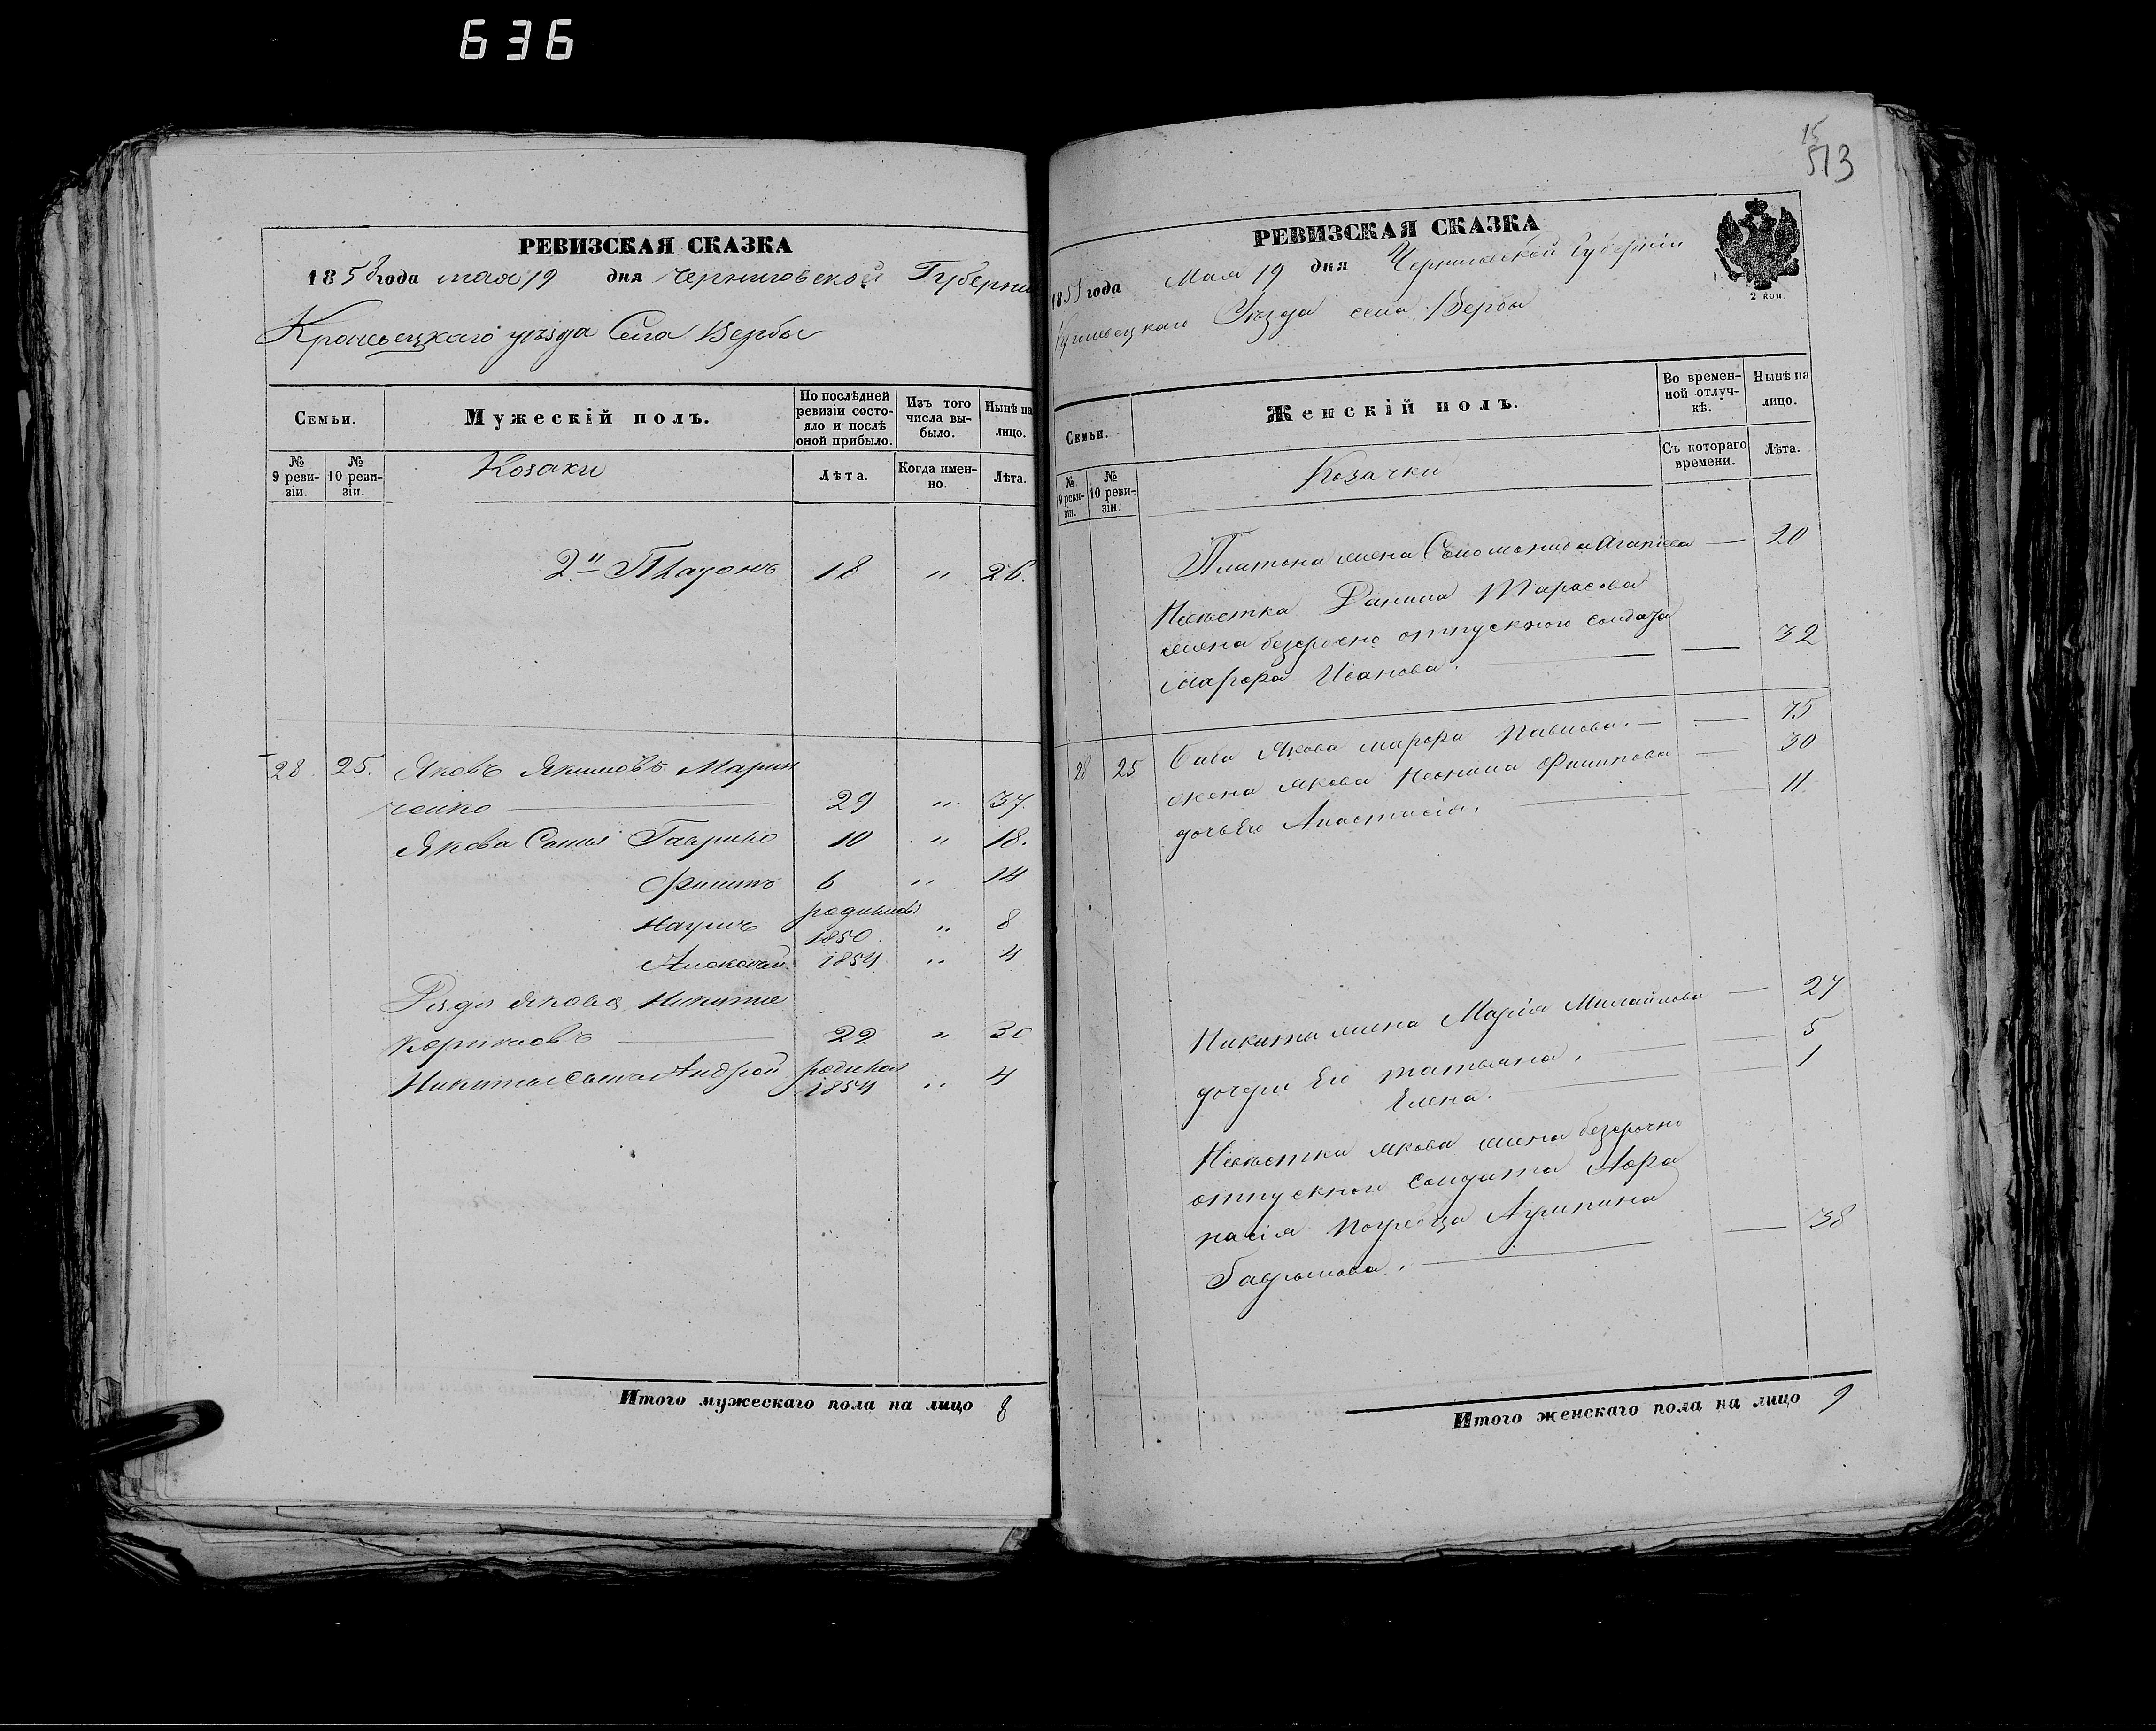 636
РЕВИЗСКАЯ СКАЗКА
1858 года мая 19 дня Черниговской Губерни
Кролевецкаго уѣзда Села Вербы
Семьи.
Мужескій полъ.
По послѣдней ревизіи состояло и послѣ оной прибыло.
Изъ того числа выбыло.
Нынѣ на лицо.
№ 9 ревизіи.
№ 10 ревизіи.
Козаки
Лѣта.
Когда именно.
Лѣта.
2й Платонъ 18 " 26.
28. 25. Яковъ Якимовъ Марин
ченко 29 " 37.
Якова Сыны Гаврило 10 " 18.
Филипъ 6 " 14
Наумъ родился 1850 " 8
Алексѣй 1854 " 4
Дядя Якова Никита
22 " 30
Никиты сынъ Андрей родился 1854 " 4
Итого мужескаго пола на лицо 8
15
513
РЕВИЗСКАЯ СКАЗКА
1858 года Мая 19 дня Черниговской Губерніи
Кролевецкаго Уѣзда села Верба
2 коп
Семьи.
Женскій полъ.
Во временной отлучкѣ.
Нынѣ на лицо.
№ 9 ревизіи.
№ 10 ревизіи.
Козачки
Съ котораго времени.
Лѣта.
Платона жена Соломонида Агапіева — 20
Невѣстка Данила Тарасова
жена безсрочно отпускного солдата
Марфа Иванова. — 32
28 25 баба Якова Марфа Павлова. — 75
жена Якова Неонила Филипова — 30
дочь Ево Анастасія. 11.
Никиты жена Марія Михайлова — 27
дочери Ево Татьяна, 5
Елена. 1
Невѣстка Якова жена безсрочно
отпускного Солдата Афа
насія Агрипина
Гаврилова. — 38
Итого женскаго пола на лицо 9